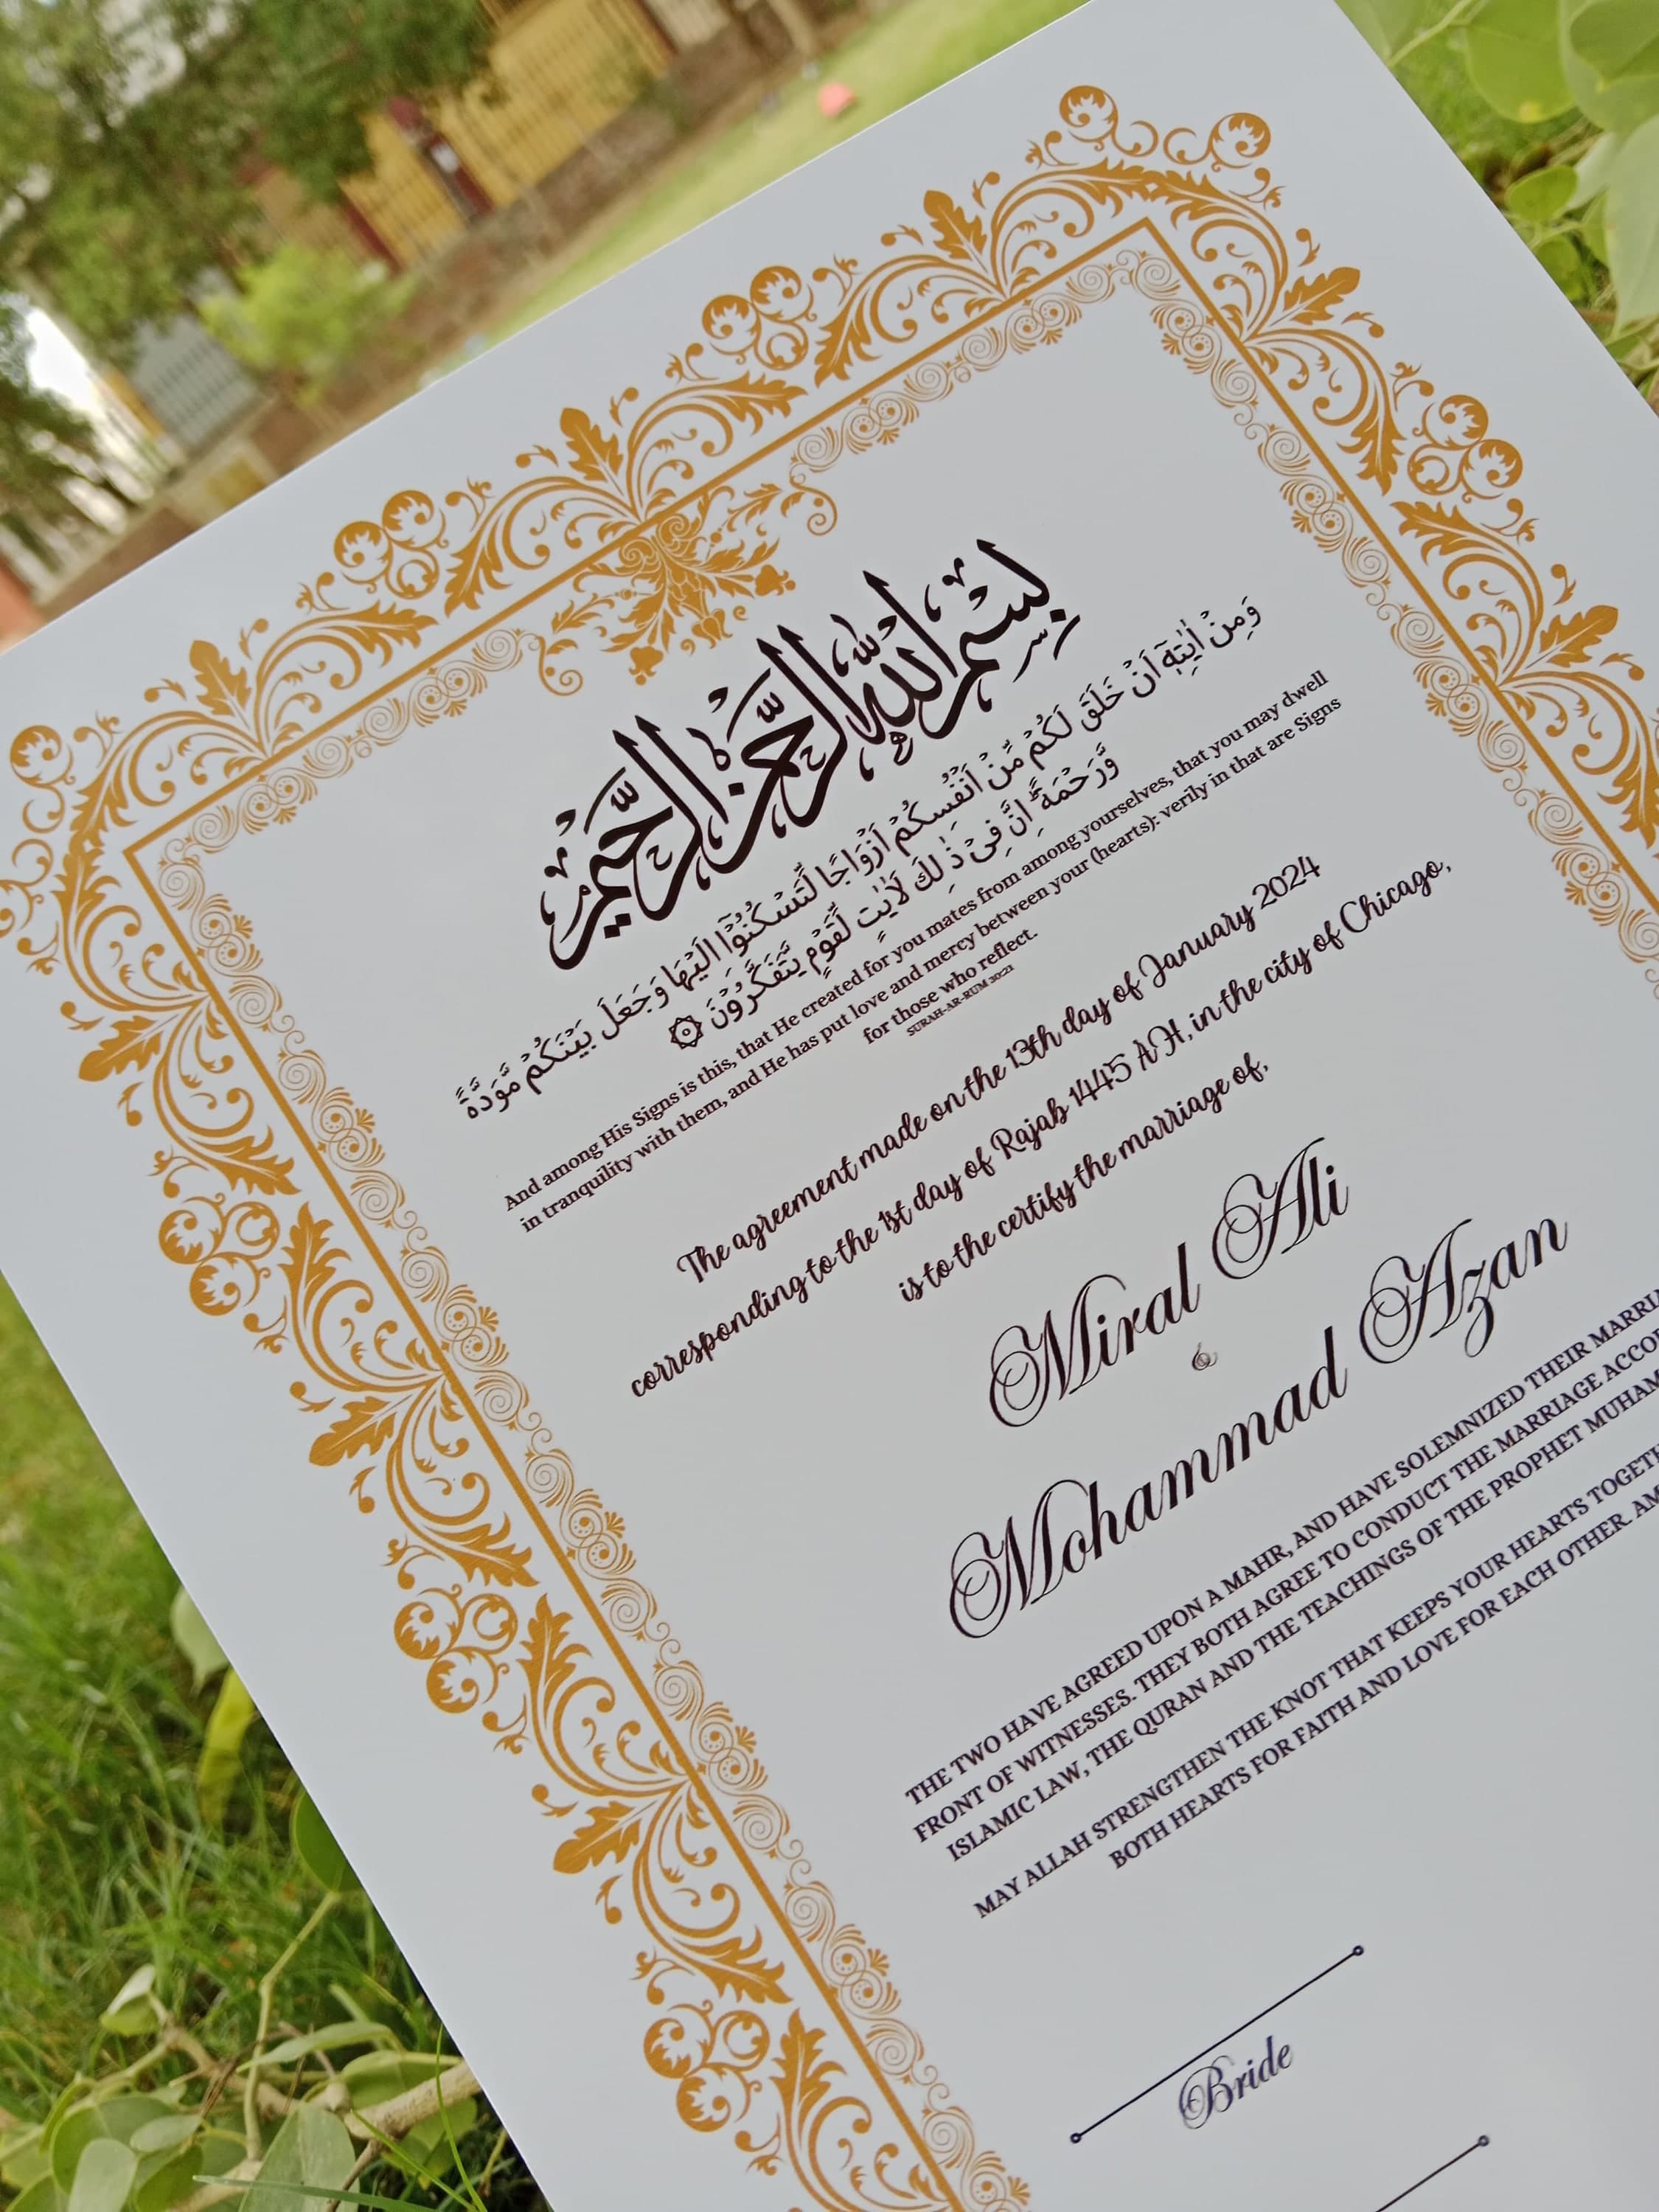 بِسْمِ اللهِ الرَّحْمٰنِ الرَّحِيْمِ
وَمِنْ اٰيٰتِهٖٓ اَنْ خَلَقَ لَكُمْ مِّنْ اَنْفُسِكُمْ اَزْوَاجًا لِّتَسْكُنُوْٓا اِلَيْهَا وَجَعَلَ بَيْنَكُمْ مَّوَدَّةً
وَّرَحْمَةً ؕ اِنَّ فِىْ ذٰ لِكَ لَاٰيٰتٍ لِّقَوْمٍ يَّتَفَكَّرُوْنَ ۞
And among His Signs is this, that He created for you mates from among yourselves, that you may dwell
in tranquility with them, and He has put love and mercy between your (hearts): verily in that are Signs
for those who reflect.
SURAH-AR-RUM 30:21
The agreement made on the 13th day of January 2024
corresponding to the 1st day of Rajab 1445 AH, in the city of Chicago,
is to the certify the marriage of,
Miral Ali
&
Mohammad Azan
THE TWO HAVE AGREED UPON A MAHR, AND HAVE SOLEMNIZED THEIR MARRIA
FRONT OF WITNESSES. THEY BOTH AGREE TO CONDUCT THE MARRIAGE ACCO
ISLAMIC LAW, THE QURAN AND THE TEACHINGS OF THE PROPHET MUHAM
MAY ALLAH STRENGTHEN THE KNOT THAT KEEPS YOUR HEARTS TOGETH
BOTH HEARTS FOR FAITH AND LOVE FOR EACH OTHER. AM
Bride